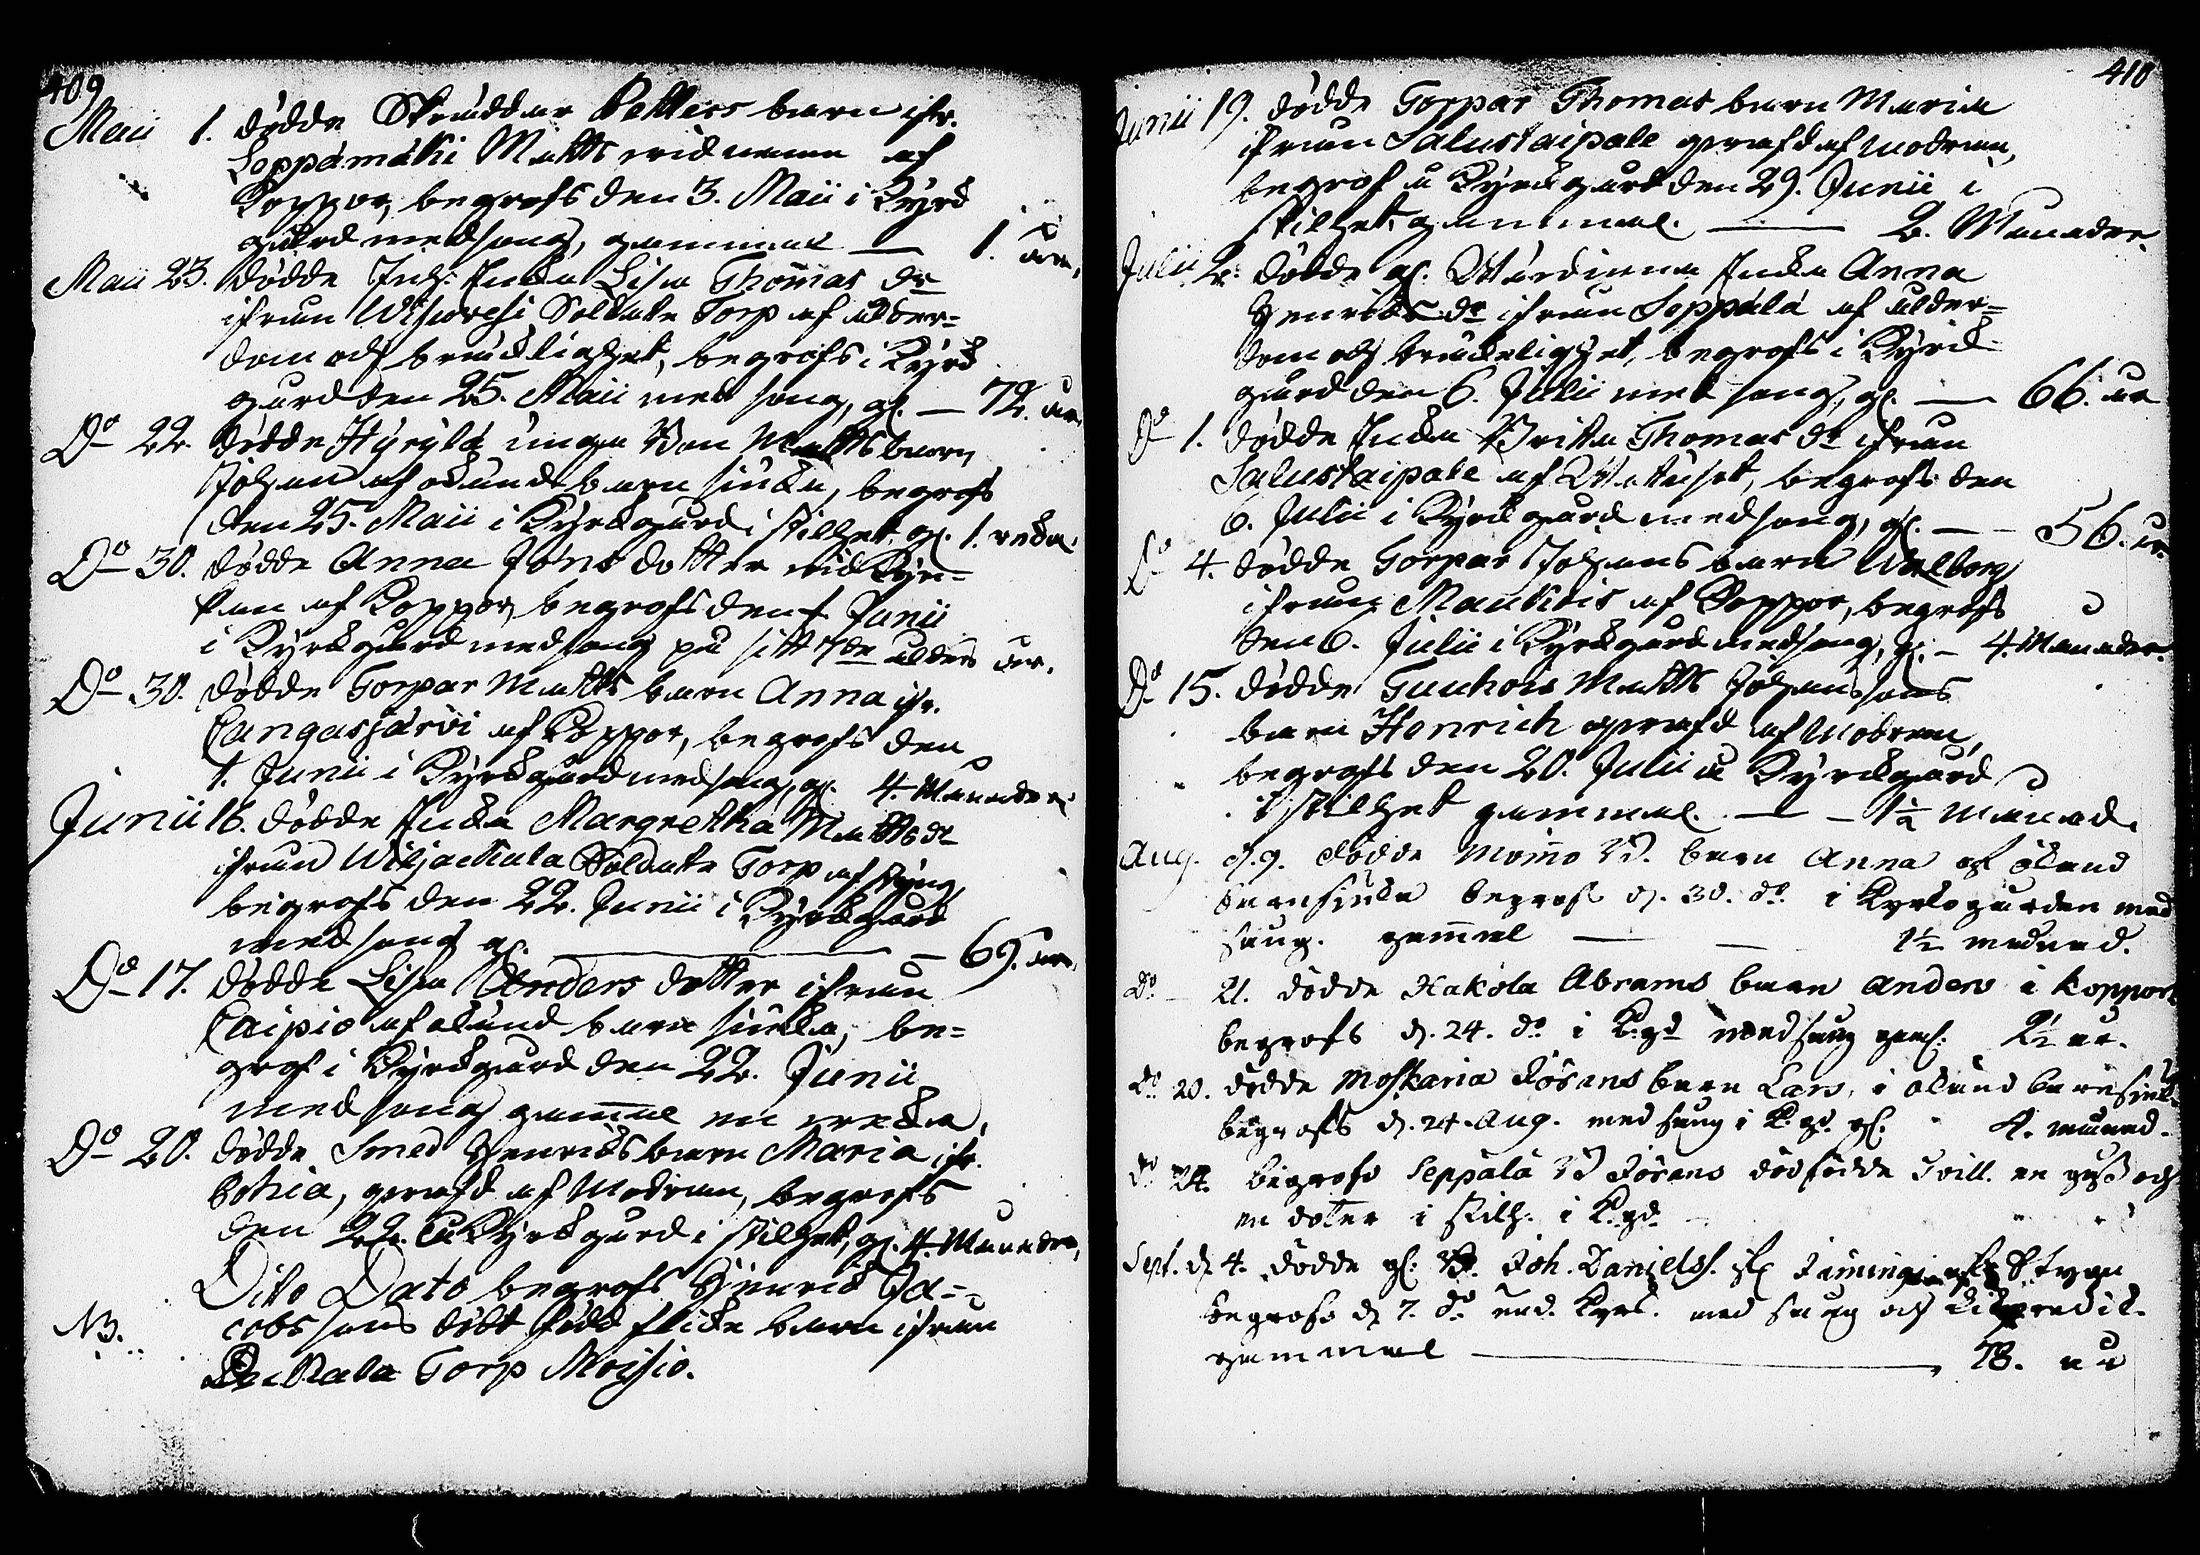 409
Maii 1. dödde Skräddar Petters barn ifr.
Seppämäki Matts widnamn af
Koppor, begrofs den 3. Maii i Kyrck
gård med sång, gammal — 1. åhr.
Maii 23. dödde Inh: Enckia Lisa Thomas dr
ifrån Wisaresi Soldate Torp af ålder=
dom och bräcklighet, begrofs i Kyrck
gård den 25. Maii med sång, gl. — 72. åhr
Do 22 dödde Hyrylä unga Bon Matts barn
Johan af okänd barn siucka, begrofs
den 25. Maii i Kyrckgård i stillhet, gl. 1. vecka.
Do 30. dödde Anna Jöns dotter wid Kyr=
kan af Koppor, begrofs den 1 Junii
i Kyrckgård med sång på sitt 7de ålders åhr.
Do 30. dödde Torpar Matts barn Anna ifr.
Cangasjärvi af Koppor, begrofs den
1. Junii i Kyrckgård med sång, gl. 4. Månader
Junii 16. dödde Enckia Margretha Matts dr
ifrån Wiljackala Soldate Torp af styng,
begrofs den 22. Junii i Kyrckgård
med sång gl. — 69. åhr.
Do 17. dödde Lisa Anders dotter ifrån
Caipio af okänd barn siucka, be=
grof i Kyrckgård den 22. Junii
med sång gammal en vecka.
Do 20. dödde Smed Henrichs barn Maria ifr.
Cohia, qwafd af Modren, begrofs
den 22. å Kyrckgård i stillhet, gl. 4. Månader,
Dito Dato begrofs Henrick Ja=
NB. cobs sons dödt född flicke barn ifrån
Torp Moisio.
410
Junii 19. dödde Torpar Thomas barn Maria
ifrån Salustaipale qwafd af modren,
begrof å Kyrckgård den 29. Junii i
stilhet, gammal. — 2. Månader.
Julii 2. dödde gl. Wärdinna Enckia Anna
Henrichs dr ifrån Seppälä af ålder=
dom och bräckelighet, begrofs i Kyrck
gård den 6. Julii med sång, gl. — 66. åhr
Do 1. dödde Enckia Brita Thomas dr ifrån
Salustaipale af Wattusot, begrofs den
6. Julii i Kyrckgård med sång, gl. — 56. åhr
Do 4. dödde Torpar Johans barn Walborg
ifrån Maukois af Koppor, begrofs
den 6. Julii i Kyrckgård med sång, gl. — 4. Månader.
Do 15. dödde Tuuhois Matts Johanssons
barn Henrich qwafd af Modren,
begrofs den 20. Julii å Kyrckgård
i stillhet gammal. — 1½ Månad.
Aug. d. 9. dödde Mommo Bd. barn Anna af okänd
barnsiucka begrofs d. 30. do i Kyrkogården med
sång. gammal — 1½ månad.
Do 21. dödde Hakola Abrams barn Anders i koppor
begrofs d. 24. do i K:gd med sång gaml: 2½ år.
Do 20. dödde Moskaria Jörans barn Lars, i okänd barnsiuk.
begrofs d. 24. Aug. med sång i K:gd. gl. 4. månad.
Do 24. begrofs Seppälä Bd Jörans dödfödde Tvill. en gosse och
en dotter i stillh. i K:gd.
Sept. d. 4. dödde gl: B. Joh. Daniels. ifr. af Styng
begrofs d. 7. do und. Kyrk. med sång och likpredik.
gammal — 78. år